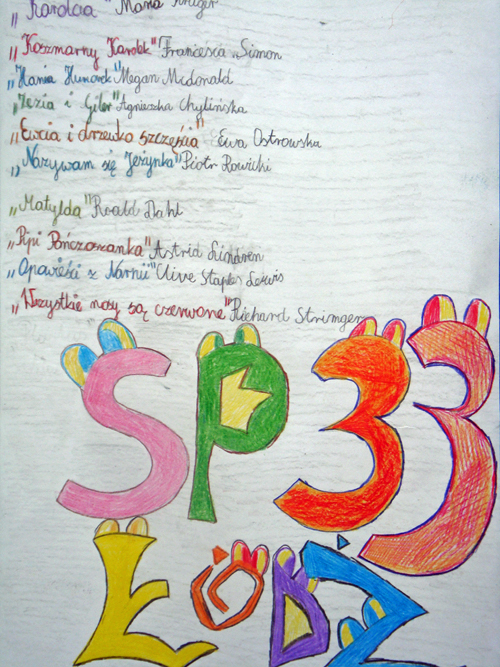 „Karolcia" Maria Krüger
„Koszmarny Karolek" Francesca Simon
„Hania Humorek" Megan Mcdonald
„Zezia i Giler" Agnieszka Chylińska
„Ewcia i drzewko szczęścia" Ewa Ostrowska
„Nazywam się Jeżynka" Piotr Rowicki
„Matylda" Roald Dahl
„Pipi Pończoszanka" Astrid Lindgren
„Opowieści z Narnii" Clive Staples Lewis
„Wszystkie nosy są czerwone" Richard Strimger
SP 33
ŁÓDŹ